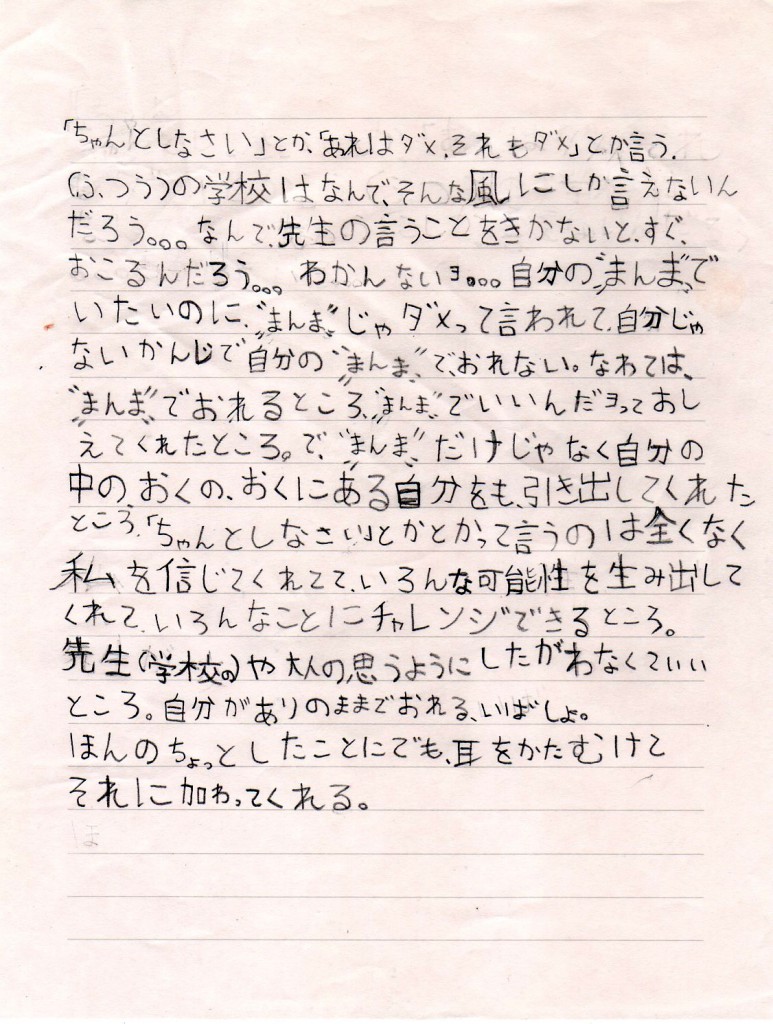 「ちゃんとしなさい」とか、「あれはダメ、それもダメ」とか言う。
(ふつう)の学校はなんで、そんな風にしか言えないん
だろう。。。なんで、先生の言うことをきかないと、すぐ、
おこるんだろう。。。わかんないヨ。。。自分の〝まんま〟で
いたいのに、〝まんま〟じゃダメって言われて、自分じゃ
ないかんじで自分の〝まんま〟で、おれない。なわては、
〝まんま〟でおれるところ、〝まんま〟でいいんだヨっておし
えてくれたところ。で、〝まんま〟だけじゃなく自分の
中の、おくの、おくにある自分をも、引き出してくれた
ところ、「ちゃんとしなさい」とかとかって言うのは全くなく
私を信じてくれてて、いろんな可能性を生み出して
くれて、いろんなことにチャレンジできるところ。
先生(学校の)や大人の思うようにしたがわなくていい
ところ。自分がありのままでおれる、いばしょ。
ほんのちょっとしたことにでも、耳をかたむけて
それに加わってくれる。
ほ